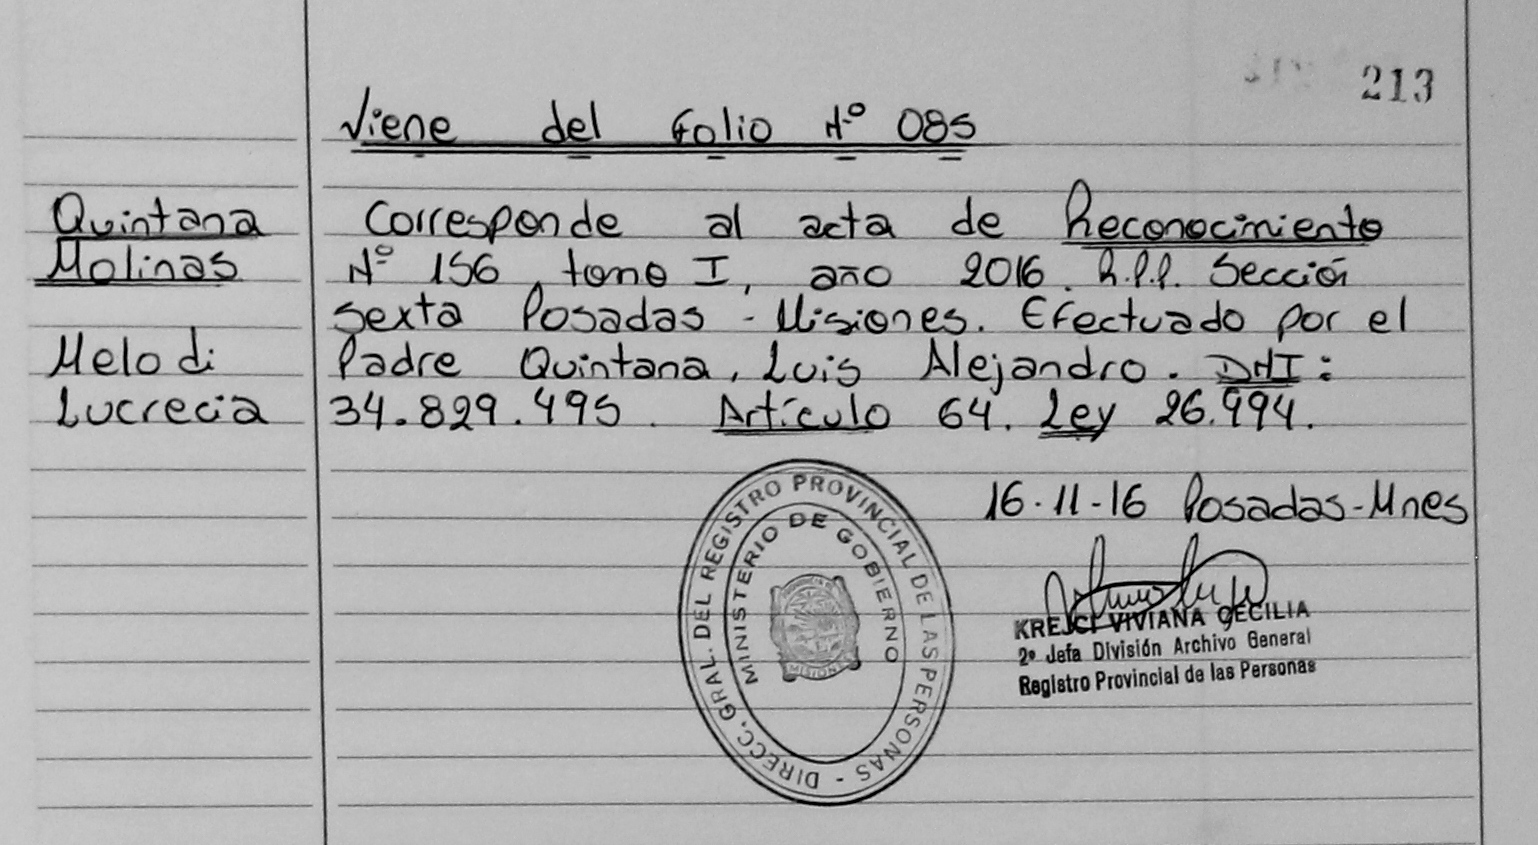 213
Viene del Folio Nº 085
Quintana
Molinas
Melodi
Lucrecia
Corresponde al acta de Reconocimiento
Nº 156, tomo I, año 2016. R.P.P. Sección
Sexta Posadas - Misiones. Efectuado por el
Padre Quintana, Luis Alejandro. DNI:
34.829.495. Artículo 64. Ley 26.994.
16-11-16 Posadas-Mnes
DIRECC. GRAL. DEL REGISTRO PROVINCIAL DE LAS PERSONAS -
MINISTERIO DE GOBIERNO
MISIONES
KREJCI VIVIANA CECILIA
2º Jefa División Archivo General
Registro Provincial de las Personas